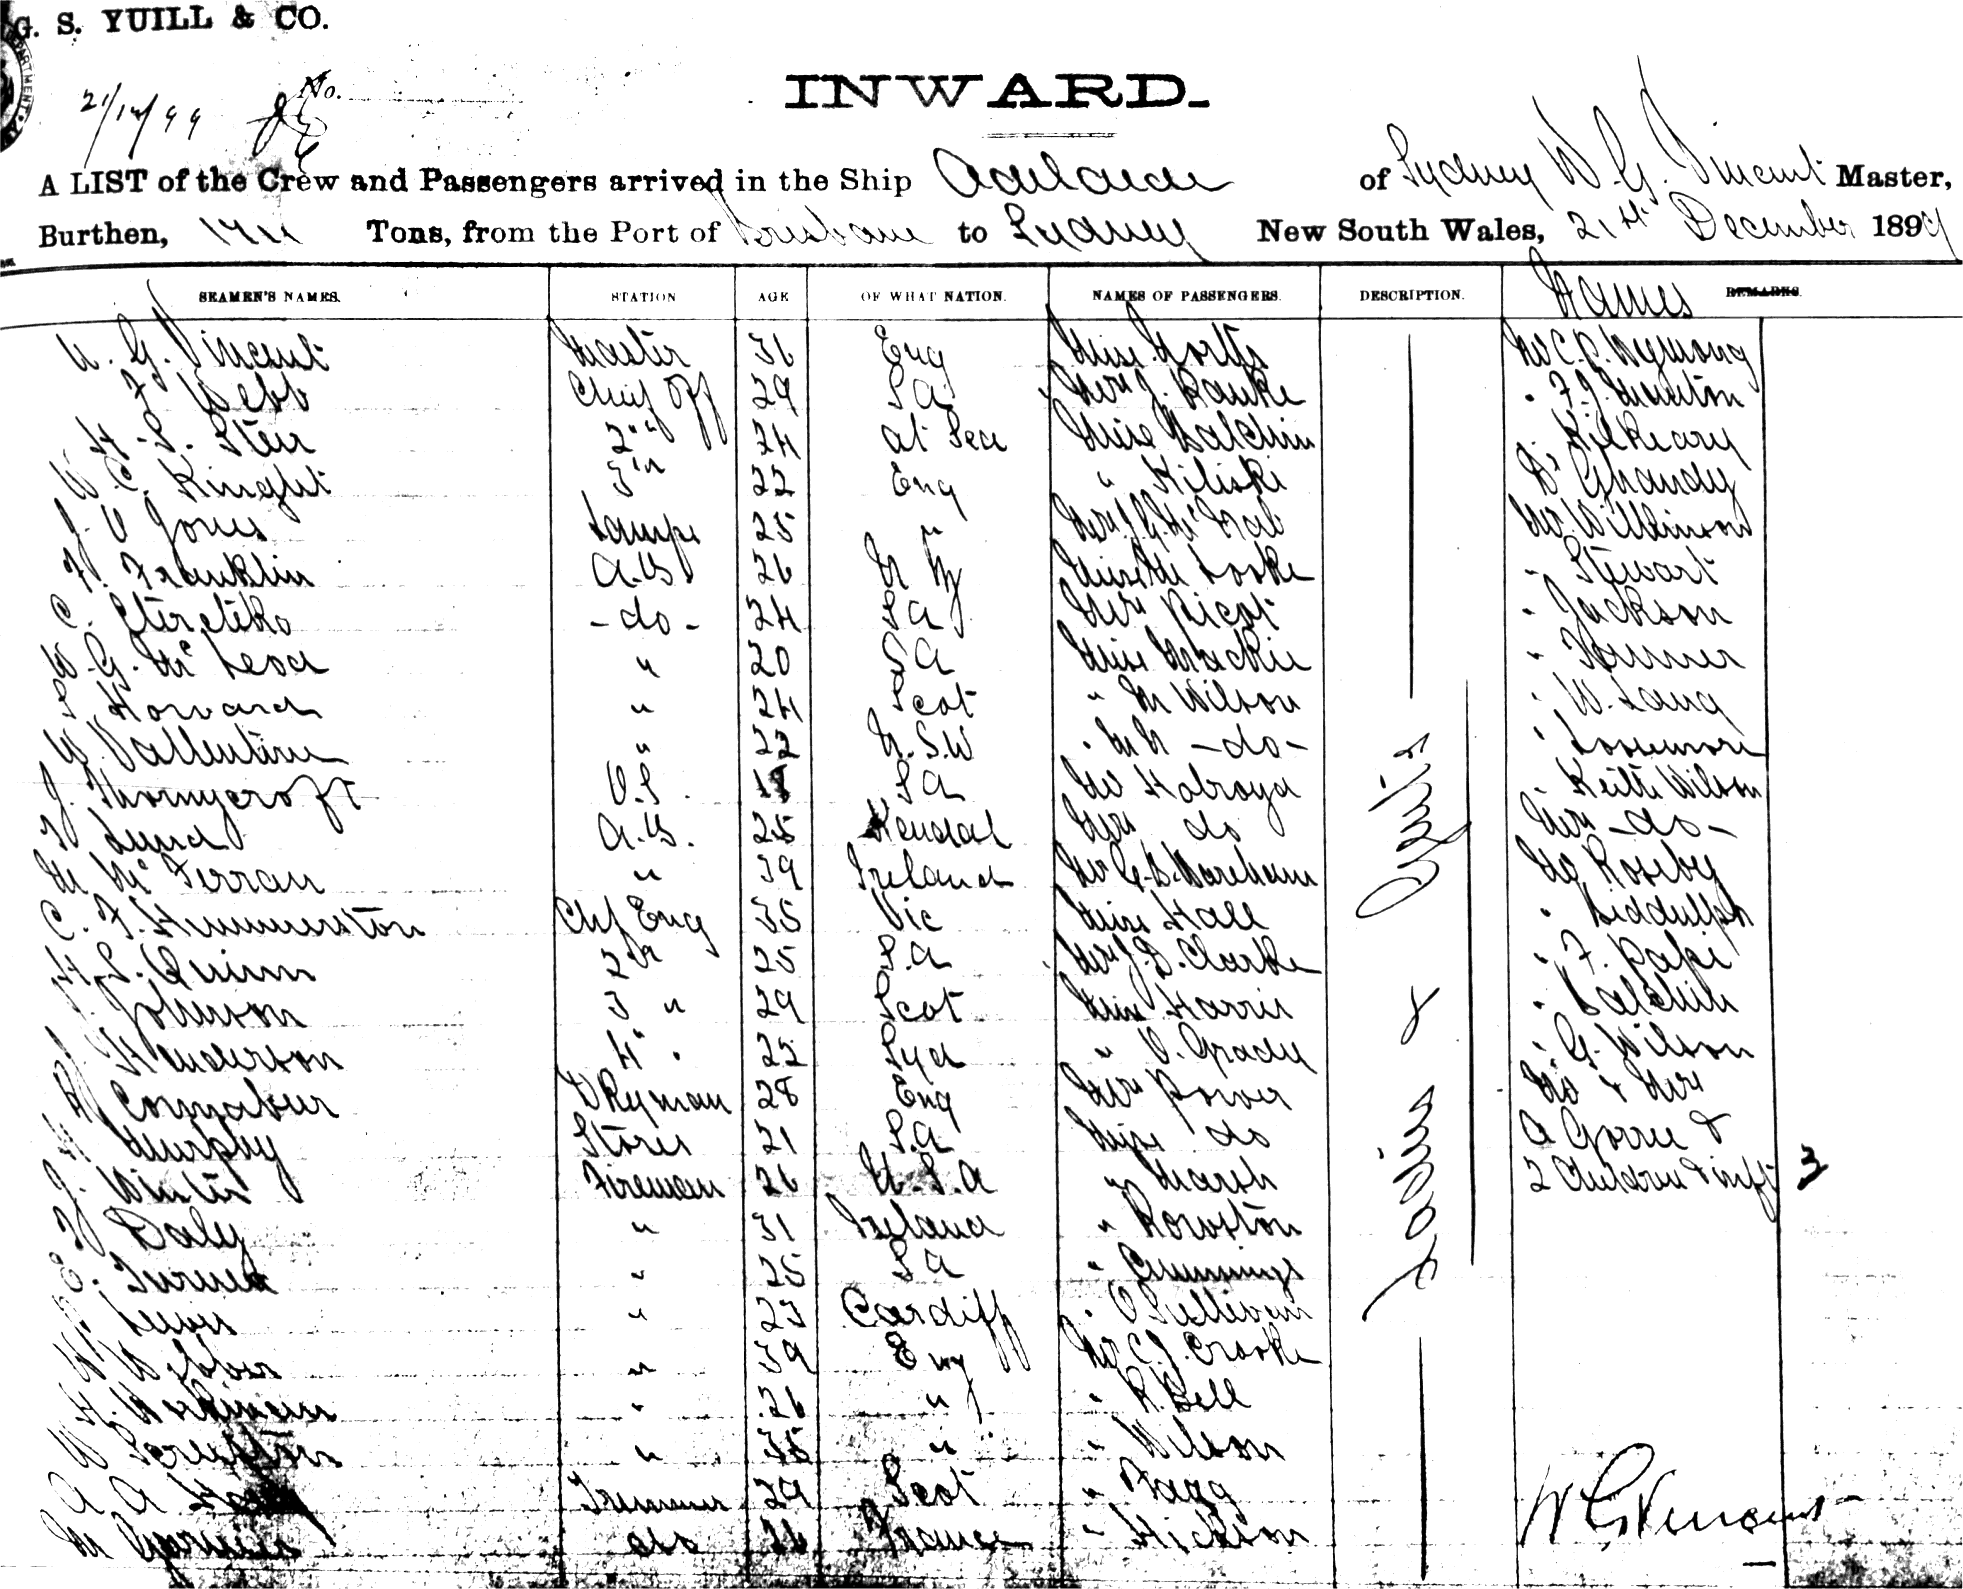 G. S. YUILL & CO.
No.
21/12/99
INWARD.
A LIST of the Crew and Passengers arrived in the Ship Adelaide of Sydney W. G. Vincent Master,
Burthen, 1711 Tons, from the Port of Brisbane to Sydney New South Wales, 21st December 1899
SEAMEN'S NAMES. STATION AGE OF WHAT NATION. NAMES OF PASSENGERS. DESCRIPTION. Names REMARKS.
W. G. Vincent Master 31 Eng Miss North Mr C. P.
F Webb Chief Off 29 SA Mrs J. Ranke " F. J.
H. S. Steer 2nd 24 at Sea Miss Balchin " Kilkeary
W. C. Knight 3rd 22 Eng " Kiliski Dr Ghandy
J. O Jones Lamps 25 " Mrs J. G. McNab Mr Wilkinson
F. Franklin A.B 26 N Z Miss Mc Looke " Stewart
C. -do- 24 SA Mrs Picot " Jackson
W. G. McLeod " 20 SA Miss Mackie "
S Howard " 24 Scot " M Wilson " W. Lang
W. Vallentine " 22 N.S.W " -do- " Losemore
J. Thornycroft O.S. SA Mr Holroyd " Keith Wilson
F Lund A.B. 25 Kendal Mrs do Mrs -do-
M McFerran " 39 Ireland Mr G. B. Wareham Mr Roseby
C. F. Hummerston Chf Eng 35 Vic Miss Hall " Biddulph
H. S. Quinn 2nd 25 S.A Mrs J. D. Clarke " F. Pape
J. Johnson 3 " 29 Scot. Miss Harris " Balchin
Henderson 4" 22 Syd " O. Grady " G. Wilson
DKyman 28 Eng Mrs Power Mr & Mrs
Murphy Stores 21 S.A Miss do A Gorrie &
J. Winter Firemen 26 U.S.A " Marsh 2 Children & inft 3
F Daly " 31 Ireland " Rowston
E. Turner " 25 SA " Cummings
Lewis " 23 Cardiff " O Sullivan
W Webber " 39 Eng Mr C. J. Crooke
H. Workman " 26 " " R. Bell
W " 35 " " Wilson
A A Trimmer 29 Scot " Fagg
M do France " Hickson
Ladies & Gents
W G Vincent